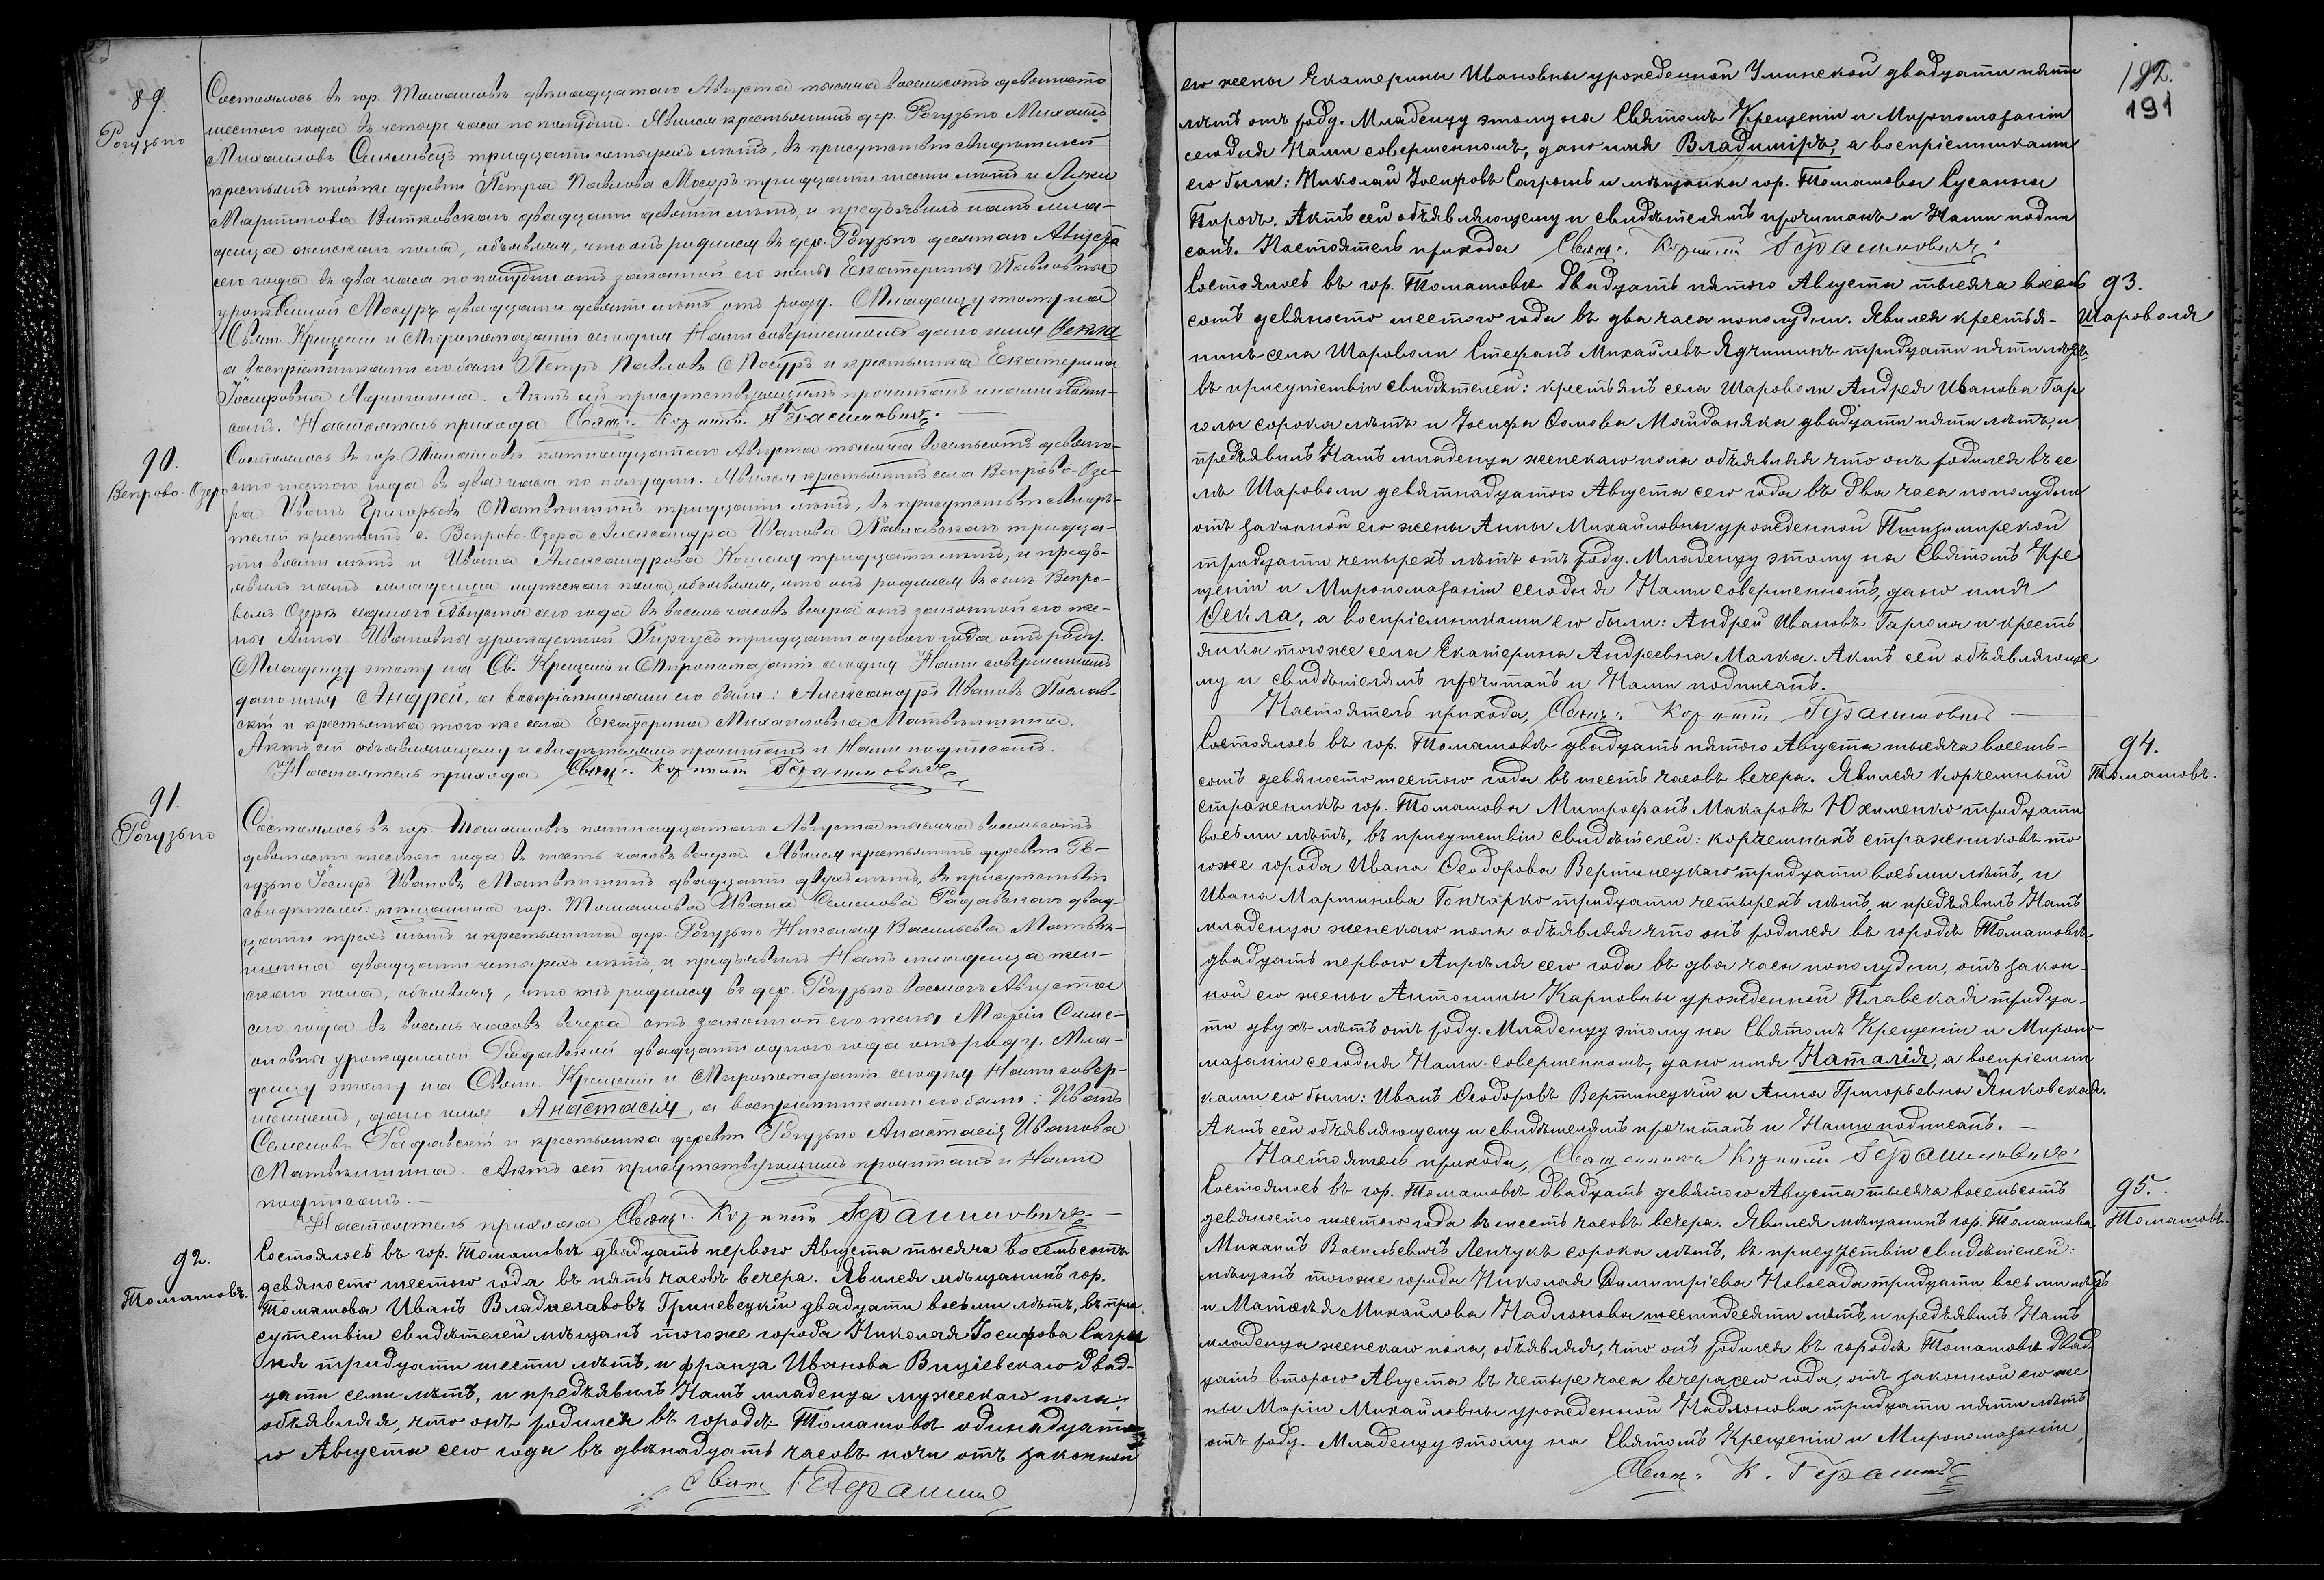 89.
Рогузьно
Состоялось въ гор. Томашовѣ двѣнадцатаго Августа тысяча восемьсотъ девяносто
шестого года въ четыре часа пополудни. Явился крестьянинъ дер. Рогузьно Михаилъ
Михаиловъ тридцати четырехъ лѣтъ, въ присутствіи свидѣтелей
крестьянъ тойже деревни Петра Павлова Мосуръ тридцати шести лѣтъ и Луки
Мартинова Витковскаго двадцати девяти лѣтъ, и предъявилъ намъ мла-
денца женскаго пола, объявляя, что онъ родился въ дер. Рогузьно десятаго Августа
сего года въ два часа пополудни отъ законной его жены Екатерины Павловны
урожденной Мосуръ двадцати девяти лѣтъ отъ роду. Младенцу этому на
Свят. Крещеніи и Миропомазаніи сегодня Нами совершенномъ дано имя Ѳекла
а воспріемниками его были Петръ Павловъ Мосуръ и крестьянка Екатерина
Іосифовна Ядчишина. Актъ сей присутствующимъ прочитанъ и нами подпи-
санъ. Настоятель прихода Свящ:. Герасимовичъ.
90.
Вепрово-Озеро
Состоялось въ гор. Томашовѣ пятнадцатаго Августа тысяча восемьсотъ девяно-
сто шестого года въ два часа по полудни. Явился крестьянинъ села Вепрово-Озе-
ра Иванъ Григорьевъ Матвѣишинъ тридцати лѣтъ, въ присутствіи свидѣ-
телей крестьянъ с. Вепрово-Озера Александра Иванова тридца-
ти восьми лѣтъ и Ивана Александрова тридцати лѣтъ, и предъ-
явилъ намъ младенца мужескаго пола, объявляя, что онъ родился въ селѣ Вепро-
вомъ Озерѣ седьмого Августа сего года въ восемь часовъ вечера отъ законной его же-
ны Анны Ивановны урожденной тридцати одного года отъ роду.
Младенцу этому на Св. Крещеніи и Миропомазаніи сегодня Нами совершенномъ
дано имя Андрей, а воспріемниками его были: Александръ Ивановъ
и крестьянка того же села Екатерина Михаиловна Матвѣишина.
Актъ сей объявляющему и свидѣтелямъ прочитанъ и Нами подписанъ.
Настоятель прихода Свящ:. Герасимовичъ
91.
Рогузьно
Состоялось въ гор. Томашовѣ пятнадцатаго Августа тысяча восемьсотъ
девяносто шестого года въ шесть часовъ вечера. Явился крестьянинъ деревни Ро-
гузьно Іосифъ Ивановъ Матвѣишинъ двадцати двухъ лѣтъ, въ присутствіи
свидѣтелей: мѣщанина гор. Томашова Ивана Семенова двад-
цати трехъ лѣтъ и крестьянина дер. Рогузьно Николая Васильева Матвѣи-
шина двадцати четырехъ лѣтъ, и предъявилъ Намъ младенца жен-
скаго пола, объявляя, что онъ родился въ дер. Рогузьно восьмого Августа
сего года въ восемь часовъ вечера отъ законной его жены Маріи Семе-
оновны урожденной двадцати одного года отъ роду. Мла-
денцу этому на Свят. Крещеніи и Миропомазаніи сегодня Нами совер-
шенномъ, дано имя Анастасія, а воспріемниками его были: Иванъ
Семеновъ и крестьянка деревни Рогузьно Анастасія Иванова
Матвѣишина. Актъ сей присутствующимъ прочитанъ и Нами
подписанъ.
Настоятель прихода Свящ:. Герасимовичъ
92.
Томашовъ.
Состоялось въ гор. Томашовѣ двадцать перваго Августа тысяча восемьсотъ
девяносто шестого года въ пять часовъ вечера. Явился мѣщанинъ гор.
Томашова Иванъ Владиславовъ Гриневецкій двадцати восьми лѣтъ, въ при-
сутствіи свидѣтелей мѣщанъ тогоже города Николая Іосифова Сагры
ня тридцати шести лѣтъ, и Франца Иванова двад-
цати семи лѣтъ, и предъявилъ Намъ младенца мужескаго пола,
объявляя, что онъ родился въ городѣ Томашовѣ одинадцата
го Августа сего года въ двѣнадцать часовъ ночи отъ законной
Свящ Герасим
192.
191
его жены Екатерины Ивановны урожденной двадцати пяти
лѣтъ отъ роду. Младенцу этому на Святомъ Крещеніи и Миропомазаніи
сегодня Нами совершенномъ, дано имя Владиміръ, а воспріемниками
его были: Николай Іосифовъ Сагрынь и мѣщанка гор. Томашова Сусанна
Пирогъ. Актъ сей объявляющему и свидѣтелямъ прочитанъ и Нами подпи
санъ. Настоятель прихода Свящ:. Герасимовичъ.
93.
Шароволя
Состоялось въ гор. Томашовѣ двадцать пятого Августа тысяча восемь
сотъ девяносто шестого года въ два часа пополудни. Явился крестья-
нинъ села Шароволи Стефанъ Михайловъ Ядчишинъ тридцати пяти лѣтъ
въ присутствіи свидѣтелей: крестьянъ села Шароволи Андрея Иванова Гар
голы сорока лѣтъ и Іосифа Ѳомова Майданяка двадцати пяти лѣтъ, и
предъявилъ Намъ младенца женскаго пола объявляя что онъ родился въ се
лѣ Шароволи девятнадцатого Августа сего года въ два часа пополудни
отъ законной его жены Анны Михайловны урожденной
тридцати четырехъ лѣтъ отъ роду. Младенцу этому на Святомъ Кре
щеніи и Миропомазаніи сегодня Нами совершенномъ, дано имя
Ѳекла, а воспріемниками его были: Андрей Ивановъ Гаргола и кресть
янка тогоже села Екатерина Андреевна Малка. Актъ сей объявляюще
му и свидѣтелямъ прочитанъ и Нами подписанъ.
Настоятель прихода, Свящ:. Герасимовичъ
94.
Томашовъ.
Состоялось въ гор. Томашовѣ двадцать пятого Августа тысяча восемь-
сотъ девяносто шестого года въ шесть часовъ вечера. Явился корчемный
стражникъ гор. Томашова Митрофанъ Макаровъ Юхименко тридцати
восьми лѣтъ, въ присутствіи свидѣтелей: корчемныхъ стражниковъ то
гоже города Ивана Ѳеодорова Вертинецкаго тридцати восьми лѣтъ, и
Ивана Мартинова Гончарко тридцати четырехъ лѣтъ, и предъявилъ Намъ
младенца женскаго пола объявляя что онъ родился въ городѣ Томашовѣ
двадцать первого Апрѣля сего года въ два часа пополудни, отъ закон-
ной его жены Антонины Карповны урожденной Плавская тридца-
ти двухъ лѣтъ отъ роду. Младенцу этому на Святомъ Крещеніи и Миропо
мазаніи сегодня Нами совершенномъ, дано имя Наталія, а воспріемни
ками его были: Иванъ Ѳеодоровъ Вертинецкій и Анна Григорьевна Янковская.
Актъ сей объявляющему и свидѣтелямъ прочитанъ и Нами подписанъ.
Настоятель прихода, Священникъ Герасимовичъ
95.
Томашовъ.
Состоялось въ гор. Томашовѣ двадцать девятого Августа тысяча восемьсотъ
девяносто шестого года въ шесть часовъ вечера. Явился мѣщанинъ гор. Томашова
Михаилъ Васильевичъ Ленчукъ сорока лѣтъ, въ присутствіи свидѣтелей:
мѣщанъ тогоже города Николая Димитріева Новосада тридцати восьми лѣтъ
и Матѳея Михайлова Надлонова шестидесяти лѣтъ, и предъявилъ Намъ
младенца женскаго пола, объявляя, что онъ родился въ городѣ Томашовѣ двад
цать второго Августа въ четыре часа вечера сего года, отъ законной его же
ны Маріи Михайловны урожденной Надлонова тридцати пяти лѣтъ
отъ роду. Младенцу этому на Святомъ Крещеніи и Миропомазаніи
Свящ: К. Герасим